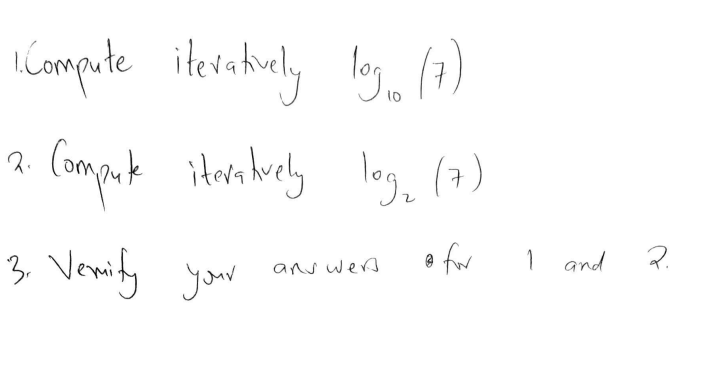 1. Compute iteratively log₁₀ (7)
2. Compute iteratively log₂ (7)
3. Verify your answers for 1 and 2.